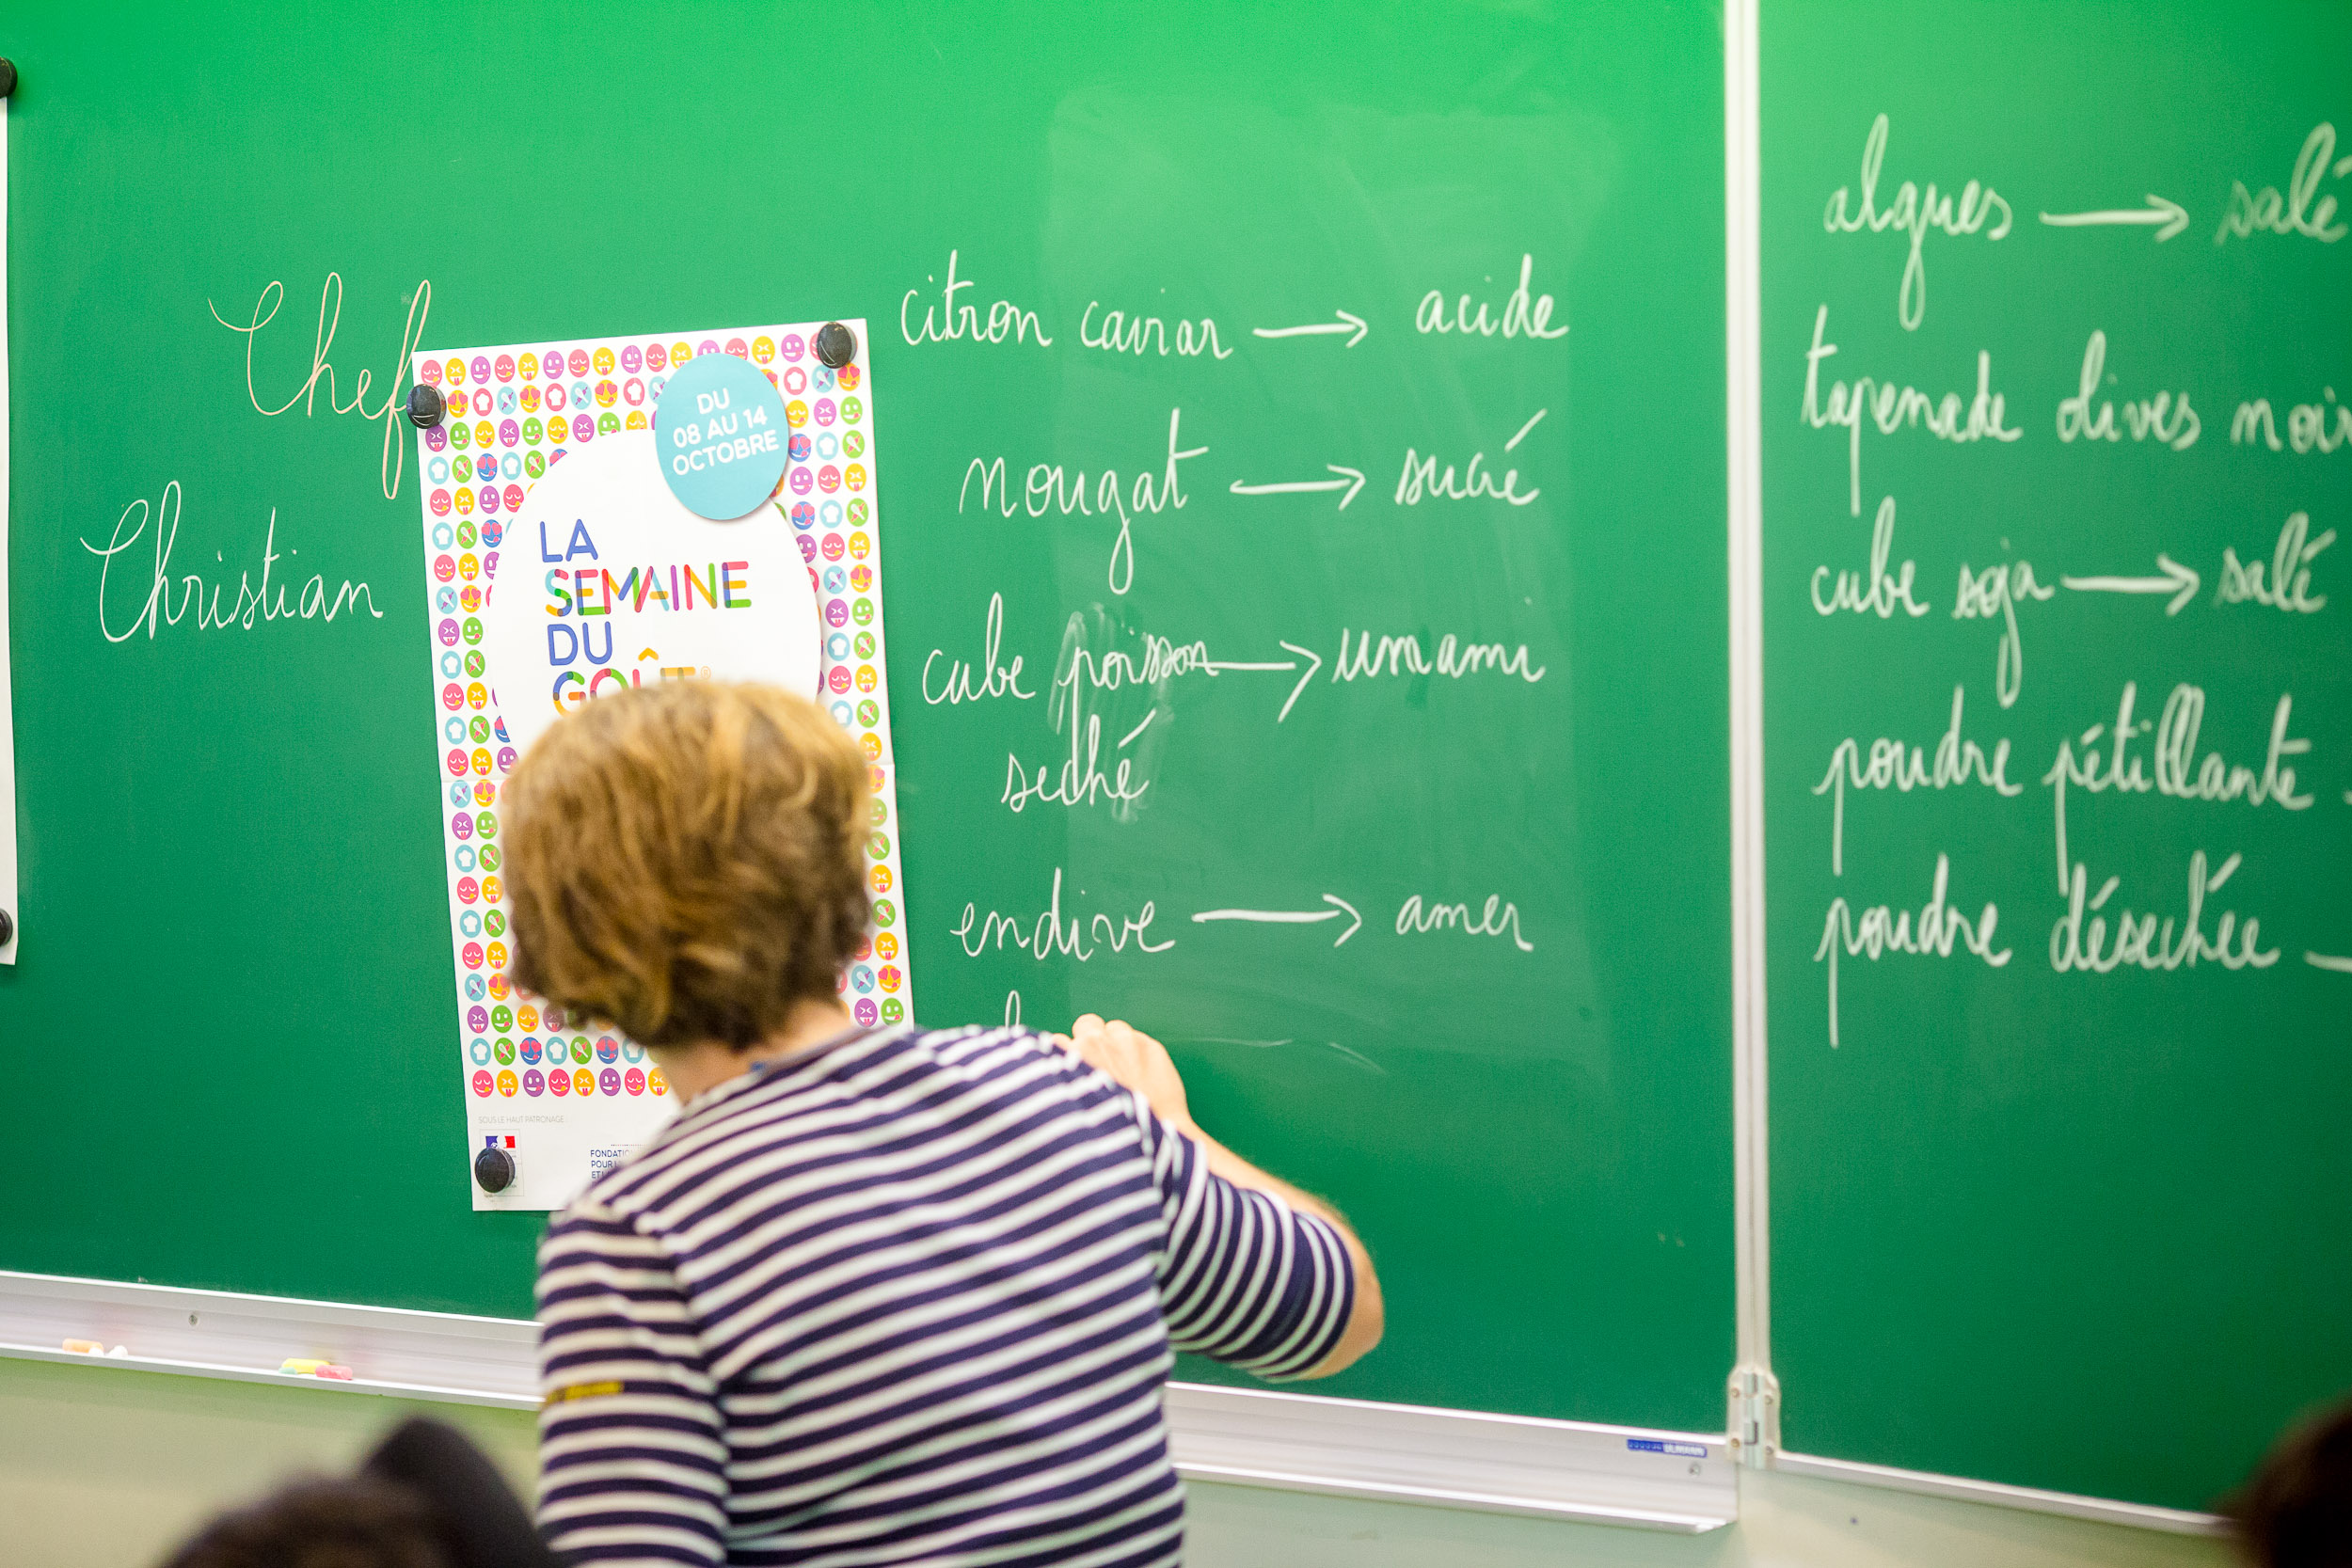 Chef
Christian
DU
08 AU 14
OCTOBRE
LA
SEMAINE
DU
GOÛT
SOUS LE HAUT PATRONAGE
citron caviar → acide
nougat → sucré
cube poisson → umami
seché
endive → amer
algues → salé
tapenade olives
cube soja → salé
poudre pétillante
poudre désechée